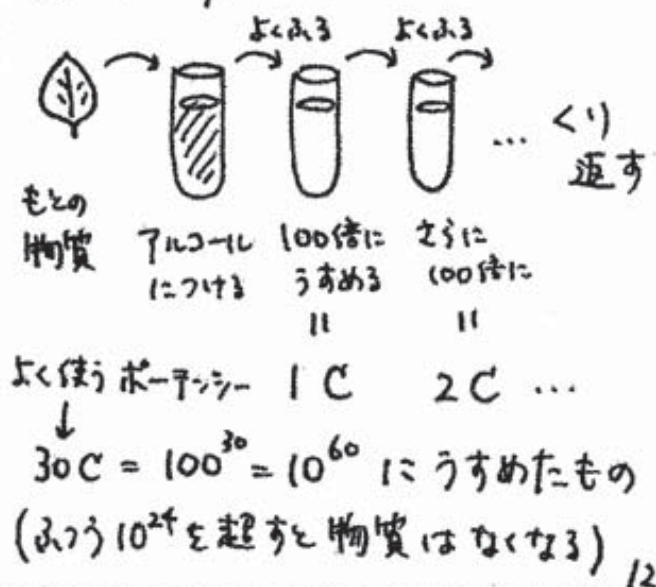 よくふる よくふる
… くり
返す
もとの
物質
アルコール
につける
100倍に
うすめる
さらに
100倍に
" "
よく使う ポーテンシー 1C 2C …
↓
30C = 100³⁰ = 10⁶⁰ にうすめたもの
(ふつう10²⁴を超すと物質はなくなる)